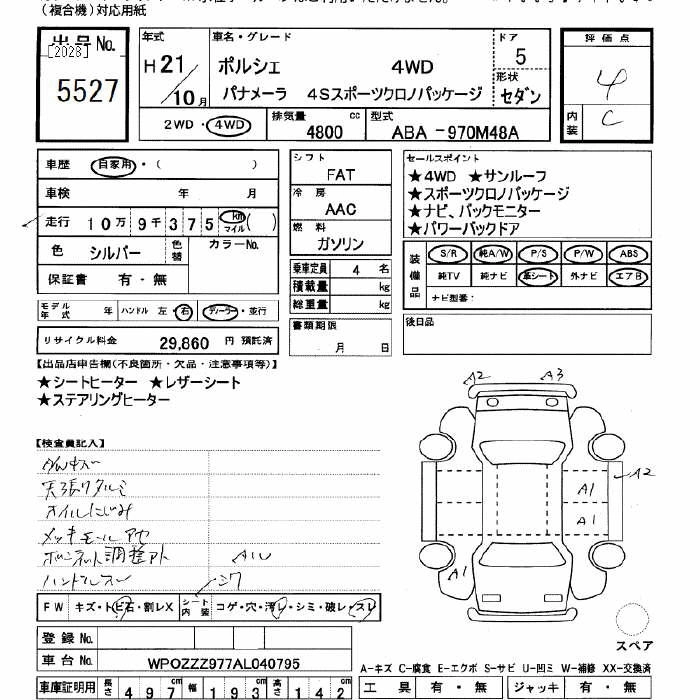 (複合機)対応用紙
出品No.
[2028]
5527
年式
H21/10月
車名・グレード
ポルシェ 4WD
パナメーラ 4Sスポーツクロノパッケージ
ドア
5
形状
セダン
評価点
4
内装
C
2WD・4WD
排気量 4800 cc
型式 ABA-970M48A
車歴 自家用・( )
車検 年 月
走行 10万9千375 km マイル ( )
色 シルバー 色替 カラーNo.
保証書 有・無
モデル年式 年 ハンドル 左・右 ディーラー・並行
リサイクル料金 29,860 円 預託済
シフト
FAT
冷房
AAC
燃料
ガソリン
乗車定員 4 名
積載量 kg
総重量 kg
書類期限
月 日
セールスポイント
★4WD ★サンルーフ
★スポーツクロノパッケージ
★ナビ、バックモニター
★パワーバックドア
装備品
S/R 純A/W P/S P/W ABS
純TV 純ナビ 革シート 外ナビ エアB
ナビ型番:
後日品
【出品店申告欄(不良箇所・欠品・注意事項等)】
★シートヒーター ★レザーシート
★ステアリングヒーター
【検査員記入】
天張りタルミ
オイルにじみ
メッキモール
ボンネット調整
ハンドルスレ
A2 A3
A2
A1
A1
A1
FW キズ・トビ石・割レX
シート内装 コゲ・穴・汚レ・シミ・破レ・スレ
登録No.
車台No. WPOZZZ977AL040795
車庫証明用 長さ 497 cm 幅 193 cm 高さ 142 cm
スペア
A-キズ C-腐食 E-エクボ S-サビ U-凹ミ W-補修 XX-交換済
工具 有・無 ジャッキ 有・無